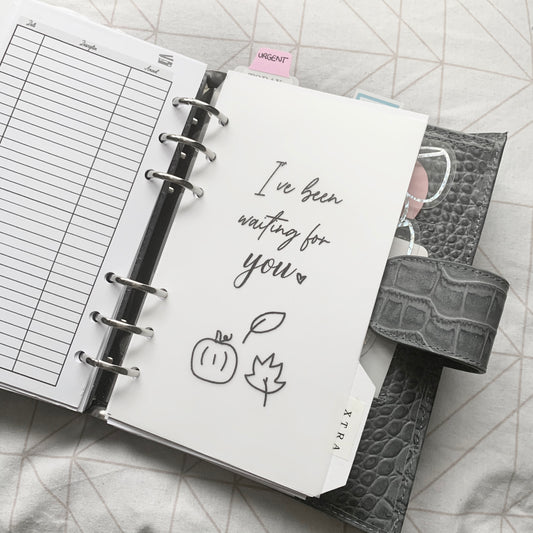 Date Description Amount
URGENT
I've been
waiting for
you
XTRA